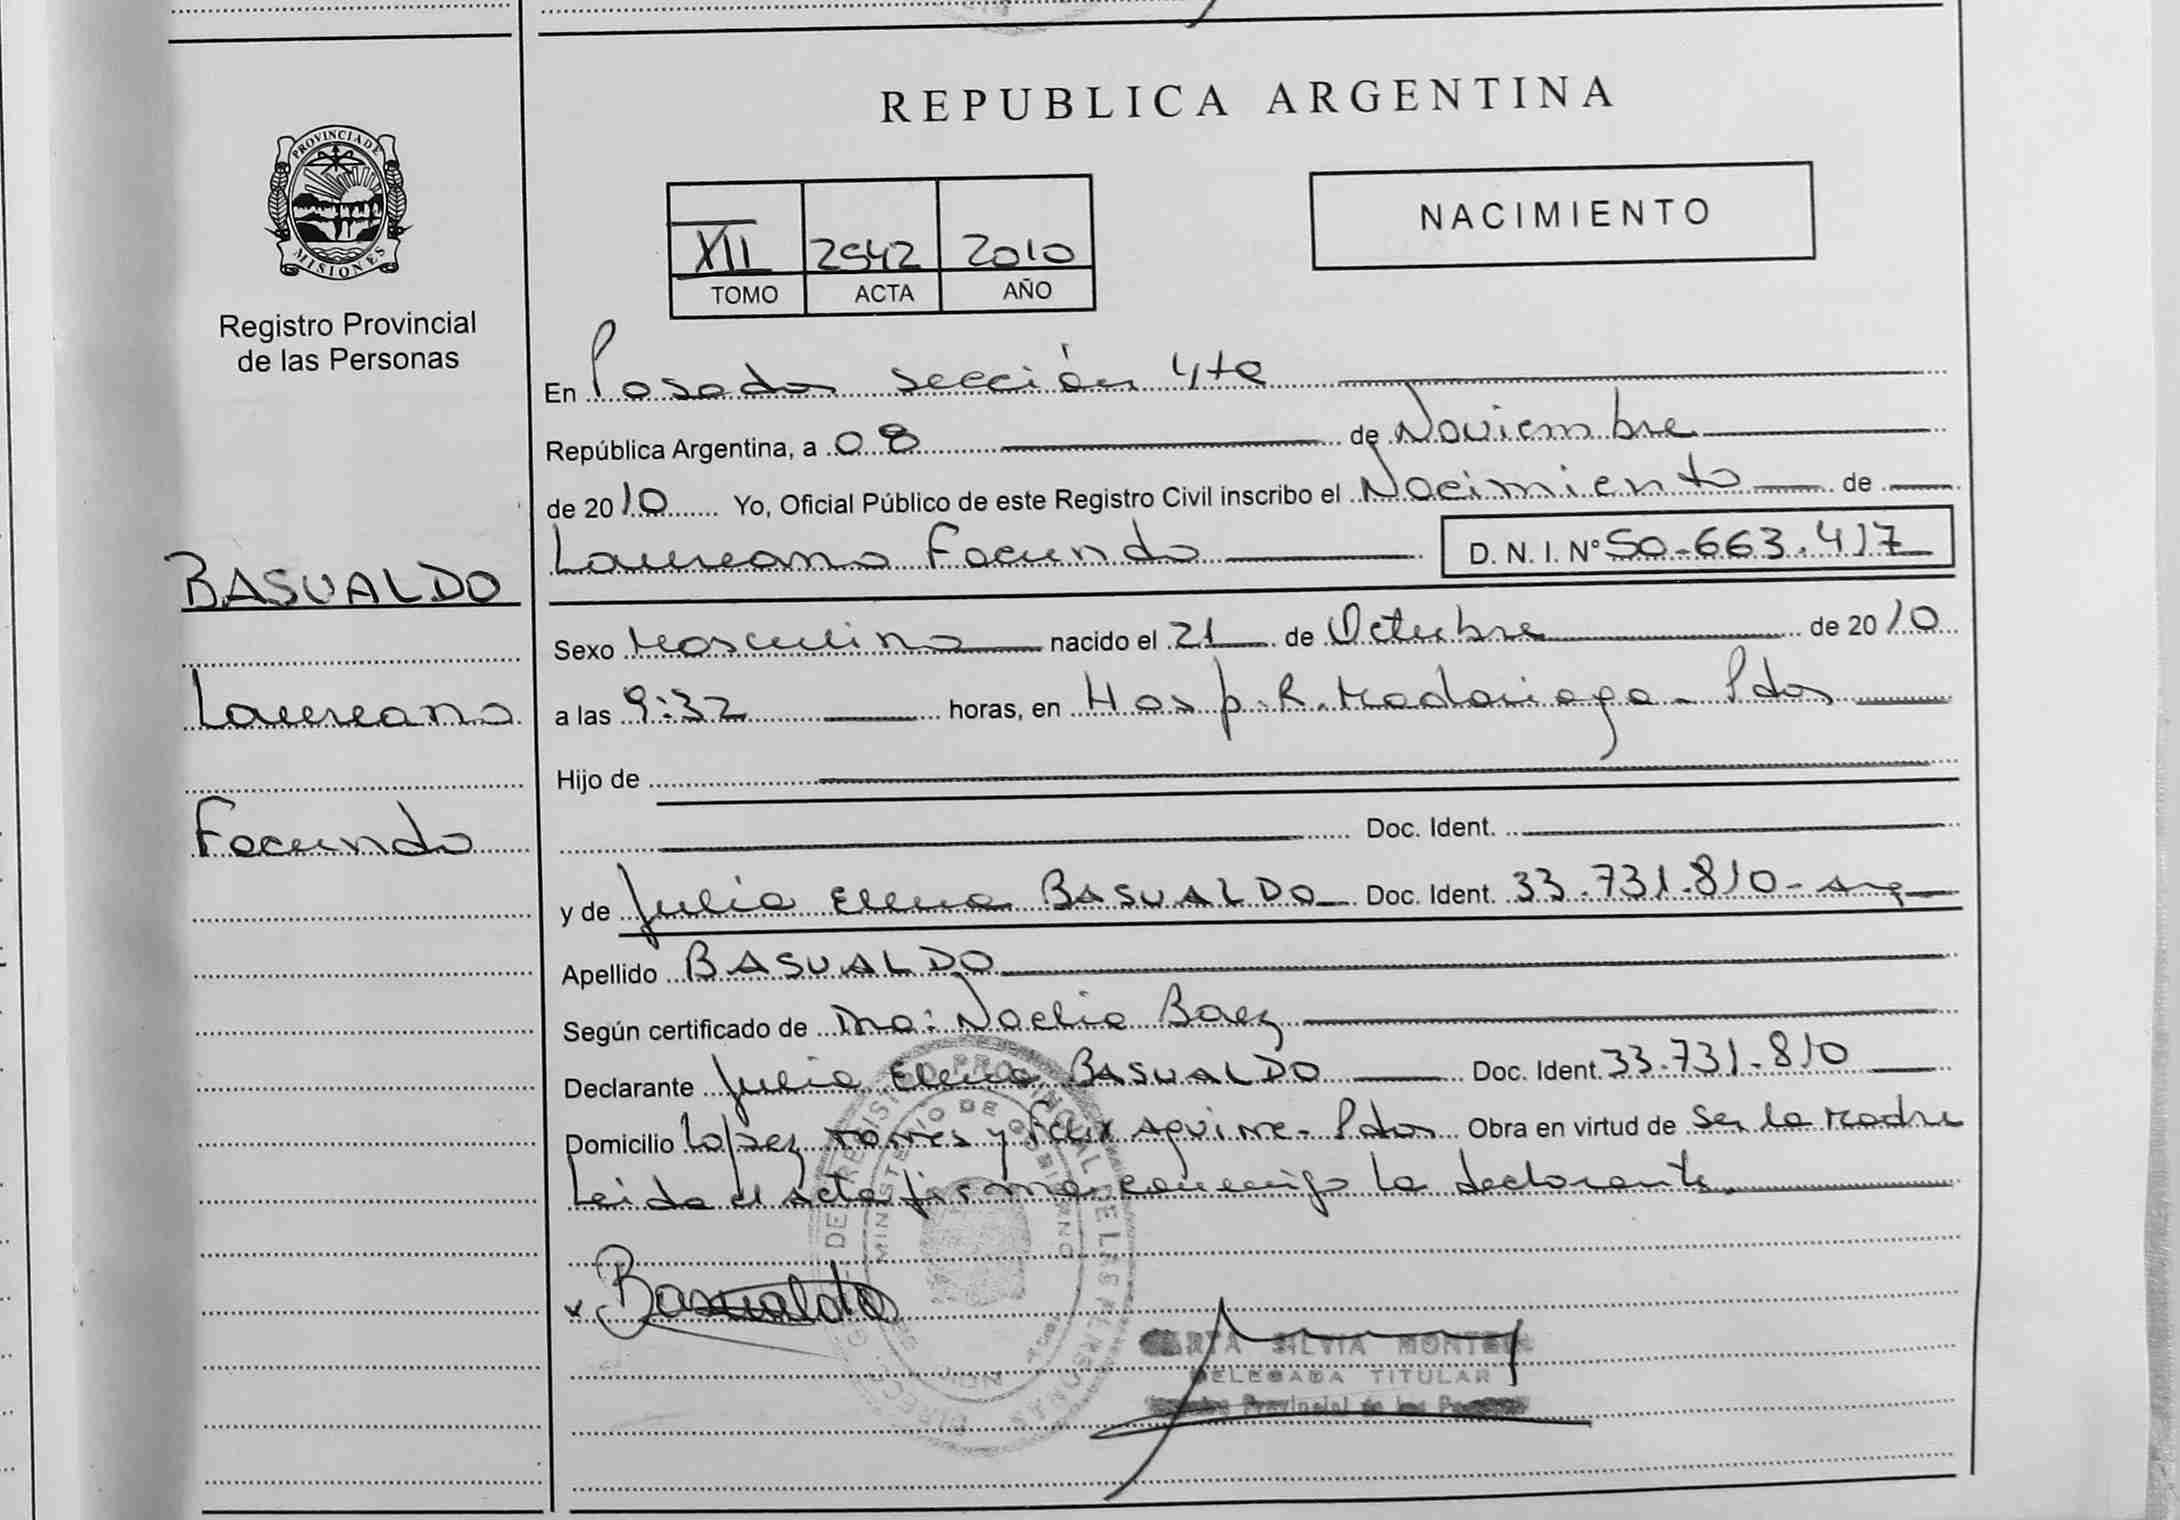 PROVINCIA DE
MISIONES
Registro Provincial
de las Personas
BASUALDO
Laureano
Facundo
REPUBLICA ARGENTINA
NACIMIENTO
XII 2542 2010
TOMO ACTA AÑO
En Posadas sección 4ta
República Argentina, a 08 de Noviembre
de 2010 Yo, Oficial Público de este Registro Civil inscribo el Nacimiento de
Laureano Facundo D. N. I. N° 50.663.417
Sexo Masculino nacido el 21 de Octubre de 2010
a las 9:32 horas, en Hosp. R. Madariaga - Pdas
Hijo de
Doc. Ident.
y de Julia Elena BASUALDO Doc. Ident. 33.731.810 - Arg
Apellido BASUALDO
Según certificado de Noelia Baez
Declarante Julia Elena BASUALDO Doc. Ident. 33.731.810
Domicilio Lopez Torres y Felix Aguirre - Pdas Obra en virtud de ser la Madre
Leida el acta firma conmigo la declarante.
x Basualdo
SILVIA
DELEGADA TITULAR
Provincial de las